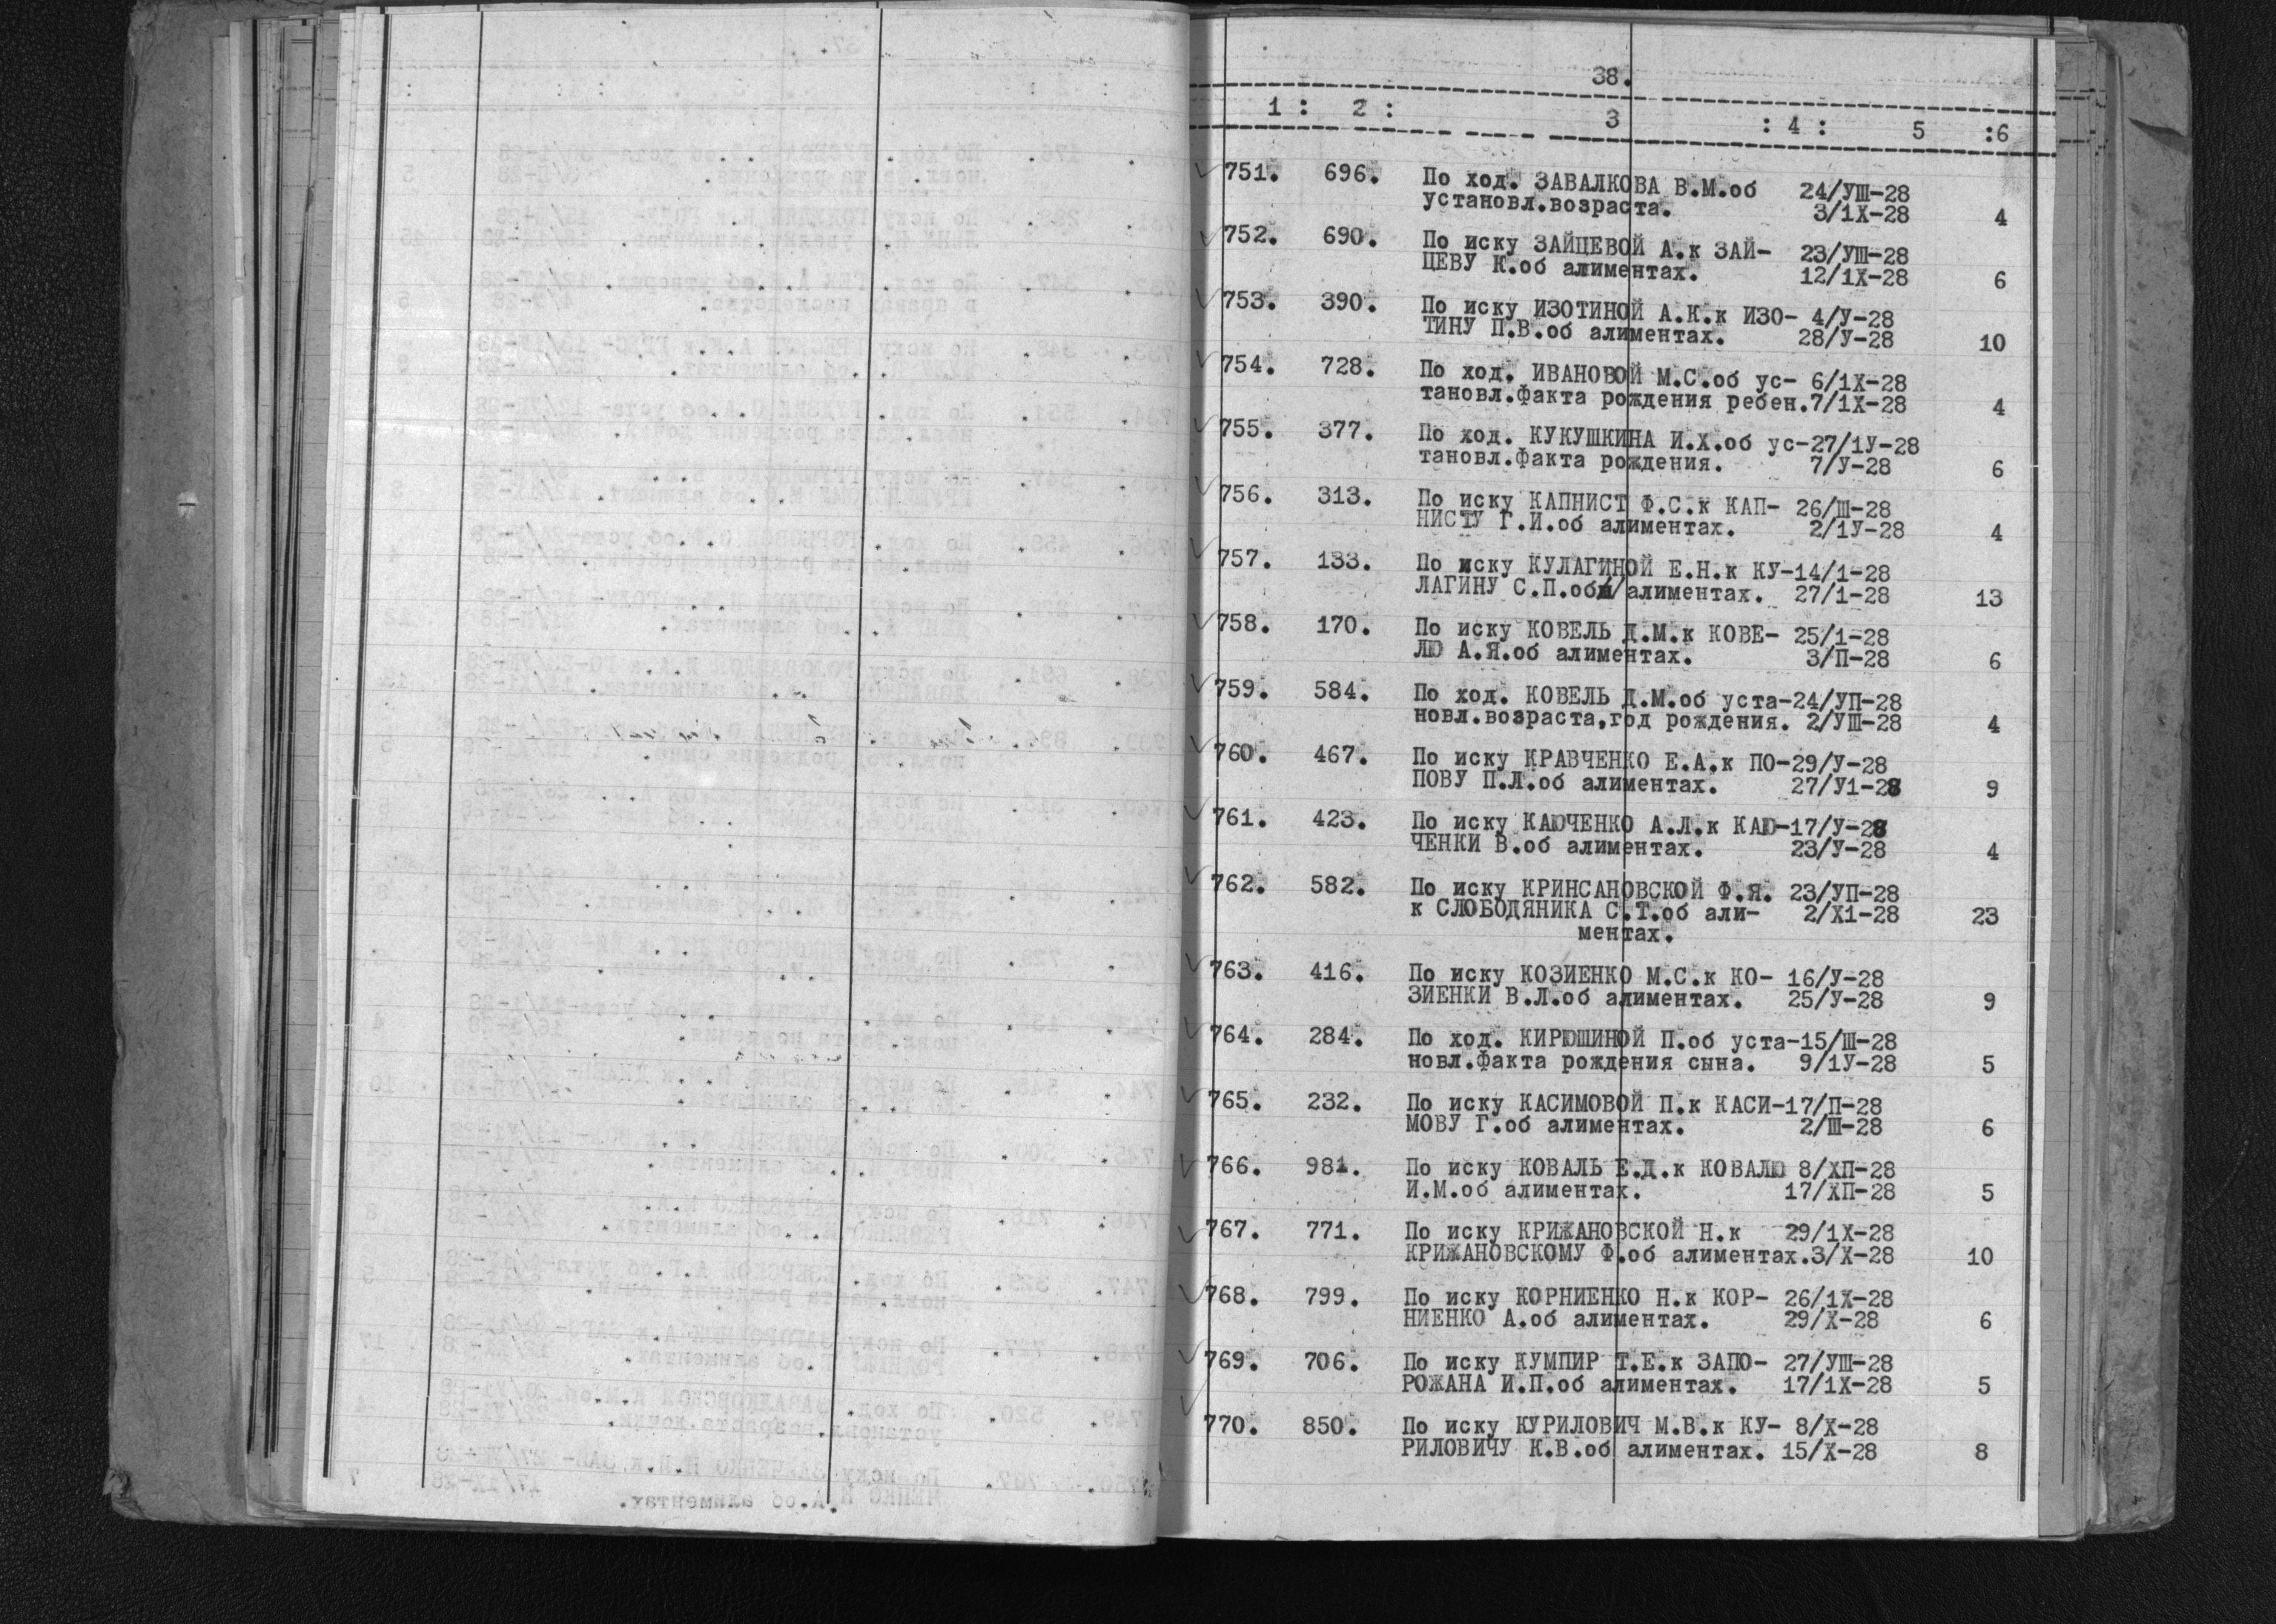 38.
1 : 2 : 3 : 4 : 5 :6
751. 696. По ход. ЗАВАЛКОВА В.М.об 24/УШ-28
установл.возраста. 3/1Х-28 4
752. 690. По иску ЗАЙЦЕВОЙ А.к ЗАЙ- 23/УШ-28
ЦЕВУ К.об алиментах. 12/1Х-28 6
753. 390. По иску ИЗОТИНОЙ А.К.к ИЗО- 4/У-28
ТИНУ П.В.об алиментах. 28/У-28 10
754. 728. По ход. ИВАНОВОЙ М.С.об ус- 6/1Х-28
тановл.факта рождения ребен.7/1Х-28 4
755. 377. По ход. КУКУШКИНА И.Х.об ус-27/1У-28
тановл.факта рождения. 7/У-28 6
756. 313. По иску КАПНИСТ Ф.С.к КАП- 26/Ш-28
НИСТУ Г.И.об алиментах. 2/1У-28 4
757. 133. По иску КУЛАГИНОЙ Е.Н.к КУ-14/1-28
ЛАГИНУ С.П.об алиментах. 27/1-28 13
758. 170. По иску КОВЕЛЬ Д.М.к КОВЕ- 25/1-28
ЛЮ А.Я.об алиментах. 3/П-28 6
759. 584. По ход. КОВЕЛЬ Д.М.об уста-24/УП-28
новл.возраста,год рождения. 2/УШ-28 4
760. 467. По иску КРАВЧЕНКО Е.А.к ПО-29/У-28
ПОВУ П.Л.об алиментах. 27/У1-28 9
761. 423. По иску КАЮЧЕНКО А.Л.к КАЮ-17/У-28
ЧЕНКИ В.об алиментах. 23/У-28 4
762. 582. По иску КРИНСАНОВСКОЙ Ф.Я. 23/УП-28
к СЛОБОДЯНИКА С.Т.об али- 2/Х1-28 23
ментах.
763. 416. По иску КОЗИЕНКО М.С.к КО- 16/У-28
ЗИЕНКИ В.Л.об алиментах. 25/У-28 9
764. 284. По ход. КИРЮШИНОЙ П.об уста-15/Ш-28
новл.факта рождения сына. 9/1У-28 5
765. 232. По иску КАСИМОВОЙ П.к КАСИ-17/П-28
МОВУ Г.об алиментах. 2/Ш-28 6
766. 981. По иску КОВАЛЬ Е.Д.к КОВАЛЮ 8/ХП-28
И.М.об алиментах. 17/ХП-28 5
767. 771. По иску КРИЖАНОВСКОЙ Н.к 29/1Х-28
КРИЖАНОВСКОМУ Ф.об алиментах.3/Х-28 10
768. 799. По иску КОРНИЕНКО Н.к КОР- 26/1Х-28
НИЕНКО А.об алиментах. 29/Х-28 6
769. 706. По иску КУМПИР Т.Е.к ЗАПО- 27/УШ-28
РОЖАНА И.П.об алиментах. 17/1Х-28 5
770. 850. По иску КУРИЛОВИЧ М.В.к КУ- 8/Х-28
РИЛОВИЧУ К.В.об алиментах. 15/Х-28 8